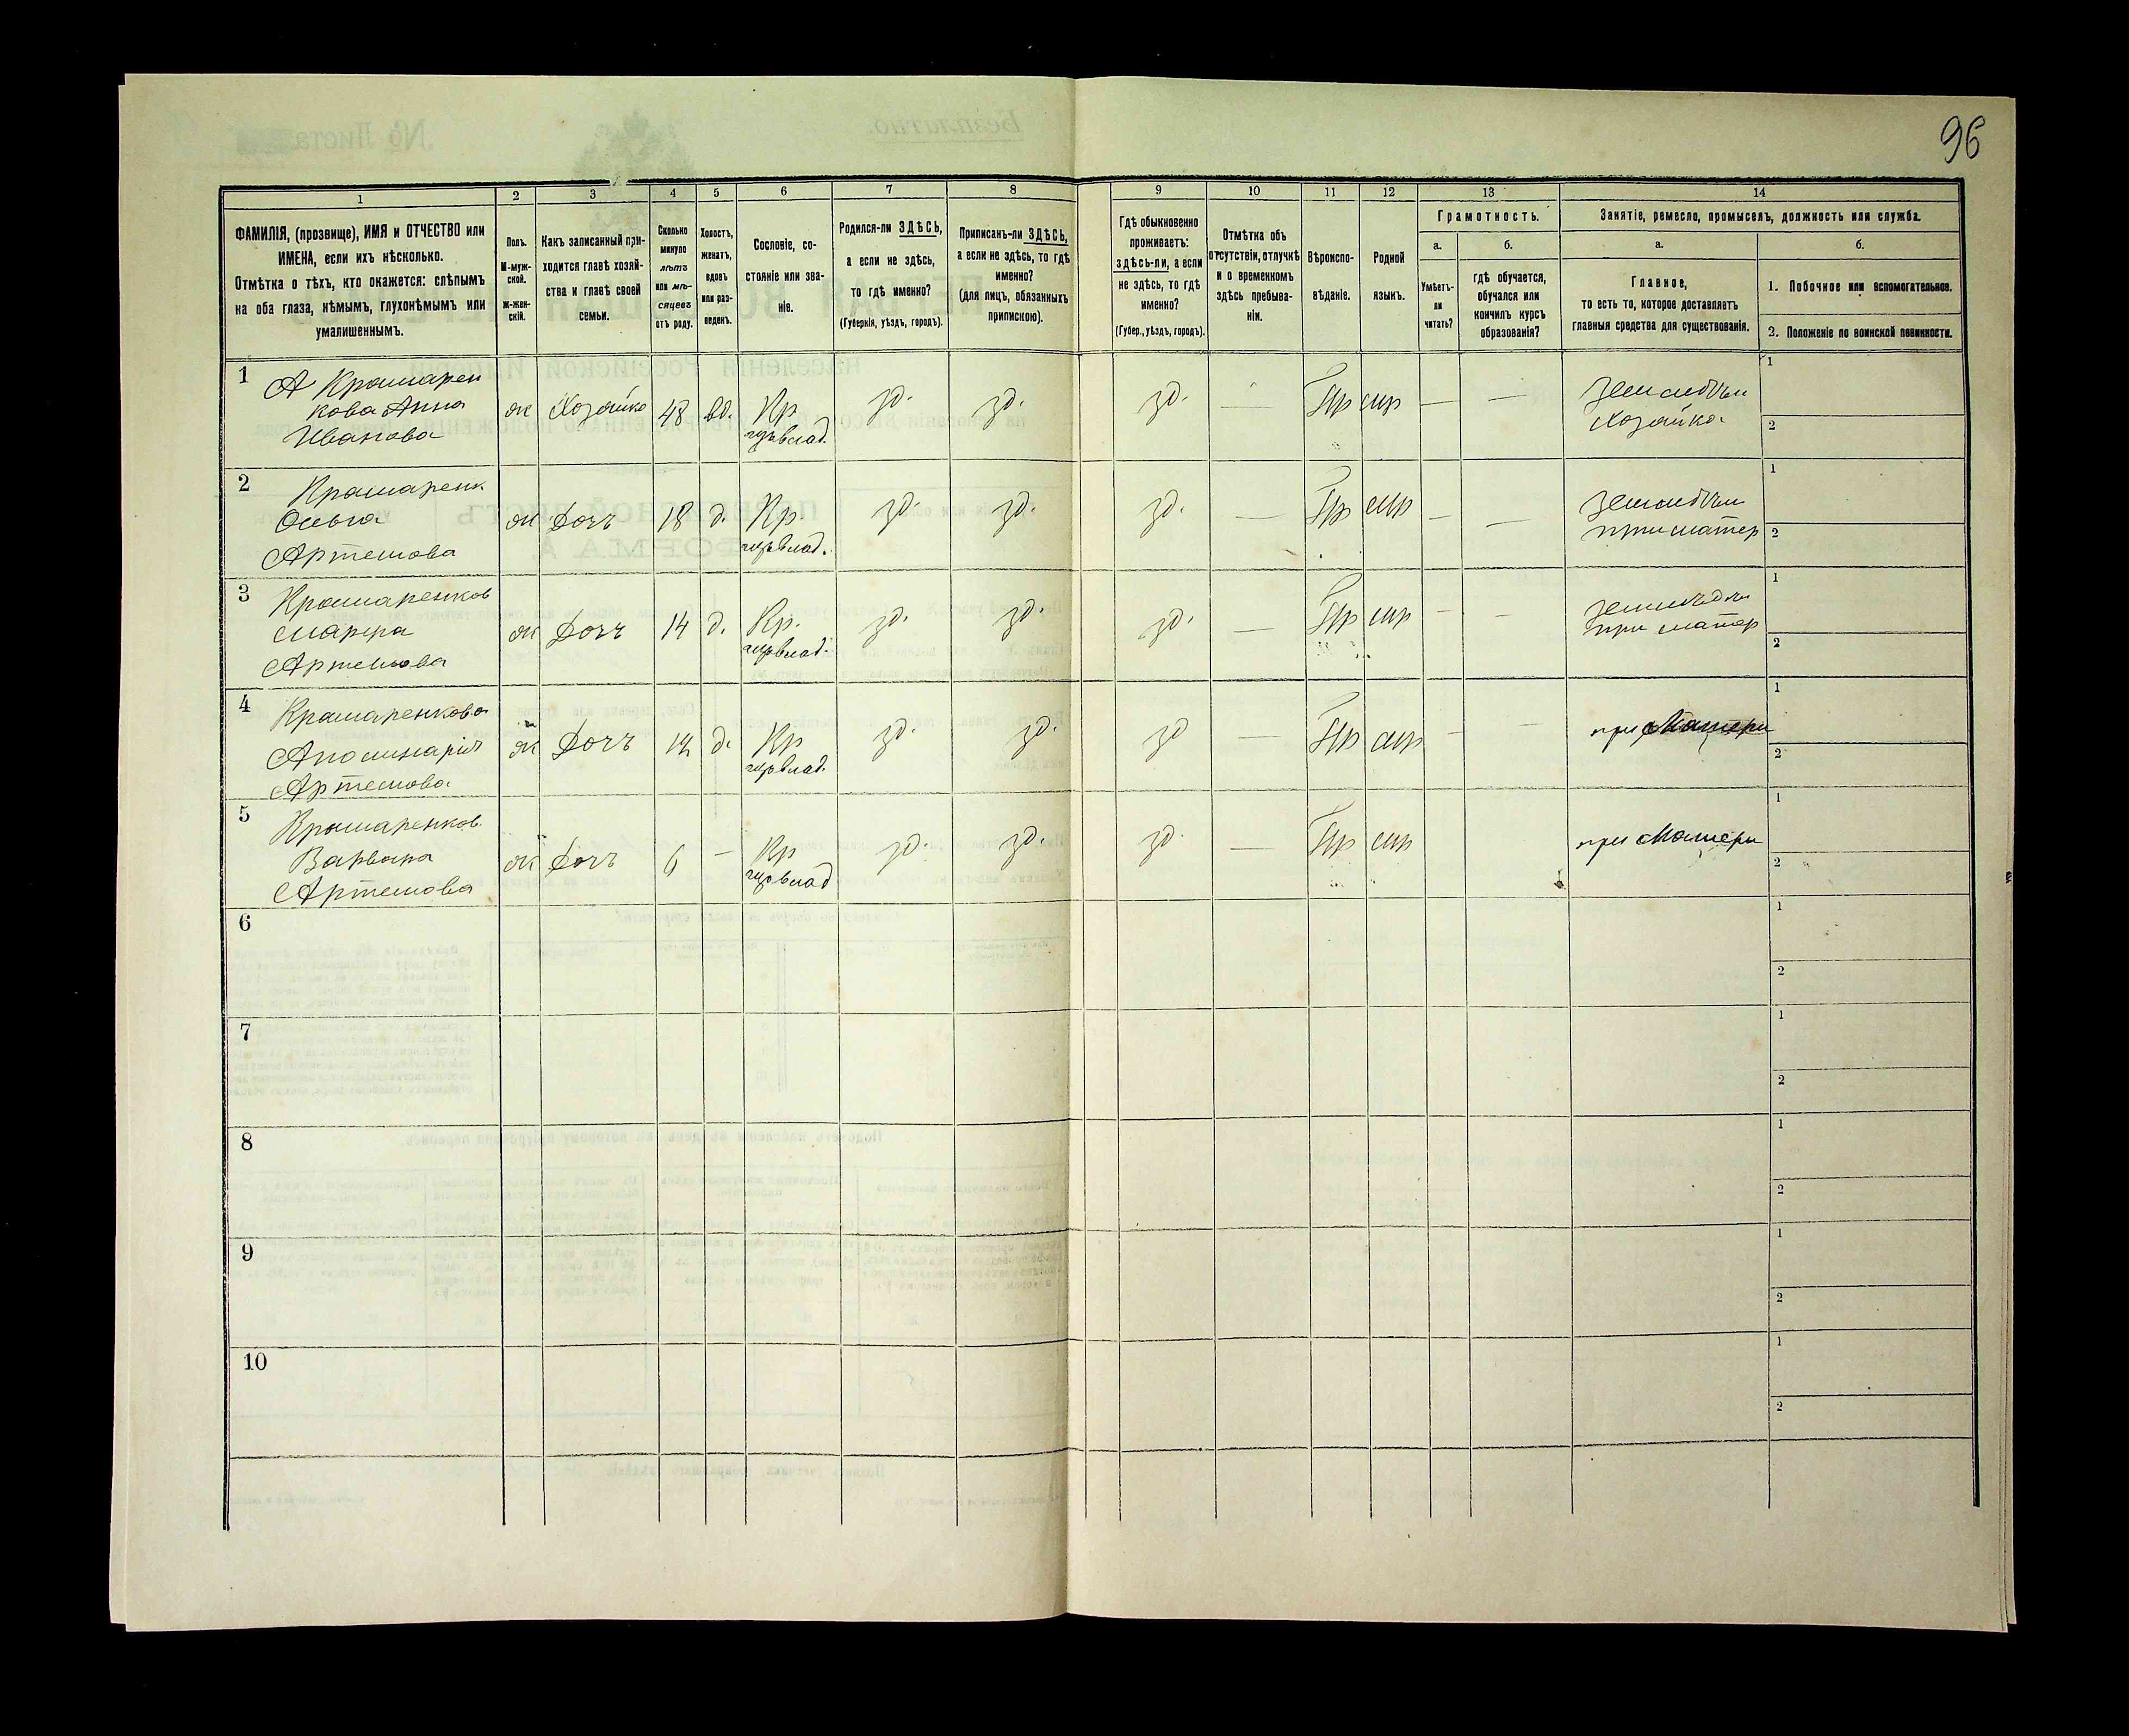 96
1 2 3 4 5 6 7 8 9 10 11 12 13 14
ФАМИЛІЯ, (прозвище), ИМЯ и ОТЧЕСТВО или
ИМЕНА, если ихъ нѣсколько.
Отмѣтка о тѣхъ, кто окажется: слѣпымъ
на оба глаза, нѣмымъ, глухонѣмымъ или
умалишеннымъ.
Полъ.
М-муж-
ской.
Ж-жен-
скій.
Какъ записанный при-
ходится главѣ хозяй-
ства и главѣ своей
семьи.
Сколько
минуло
лѣтъ
или мѣ-
сяцевъ
отъ роду.
Холостъ,
женатъ,
вдовъ
или раз-
веденъ.
Сословіе, со-
стояніе или зва-
ніе.
Родился-ли ЗДѢСЬ,
а если не здѣсь,
то гдѣ именно?
(Губернія, уѣздъ, городъ).
Приписанъ-ли ЗДѢСЬ,
а если не здѣсь, то гдѣ
именно?
(для лицъ, обязанныхъ
припискою).
Гдѣ обыкновенно
проживаетъ:
здѣсь-ли, а если
не здѣсь, то гдѣ
именно?
(Губер., уѣздъ, городъ).
Отмѣтка объ
отсутствіи, отлучкѣ
и о временномъ
здѣсь пребыва-
ніи.
Вѣроиспо-
вѣданіе.
Родной
языкъ.
Грамотность.
а.
Умѣетъ-
ли
читать?
б.
гдѣ обучается,
обучался или
кончилъ курсъ
образованія?
Занятіе, ремесло, промыселъ, должность или служба.
а.
Главное,
то есть то, которое доставляетъ
главныя средства для существованія.
б.
1. Побочное или вспомогательное.
2. Положеніе по воинской повинности.
1
А Крамарен
кова Анна
Иванова
ж Хозяйка 48 вд. Кр зд. зд. зд. — Пр мр — —
Хозяйка
1
2
2
Крамаренк
Ольга
Артемова
ж Дочь 18 д. Кр. зд. зд. зд. — Пр мр — —
при матер
1
2
3
Крамаренков
Марфа
Артемова
ж Дочь 14 д. Кр. зд. зд. зд. — Пр мр — —
при матер
1
2
4
Крамаренкова
Артемова
ж Дочь 12 д. Кр зд. зд. зд — Пр мр — —
при Матери
1
2
5
Крамаренков.
Варвара
Артемова
ж Дочь 6 — Кр зд. зд. зд. — Пр мр
при Матери
1
2
6
1
2
7
1
2
8
1
2
9
1
2
10
1
2